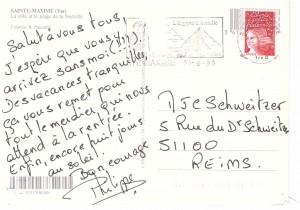 SAINTE-MAXIME (Var)
La ville et la plage de la Nartelle
Salut à vous tous,
J'espère que vous
arrivez sans moi (!!!)
Des vacances tranquilles,
ça vous remet pour
tout le merdier qui nous
attend à la rentrée.
Enfin, encore huit jours
au soleil.
Bon courage
Philippe
MJC Schweitzer
5 Rue du Dr Schweitzer
51100
REIMS.